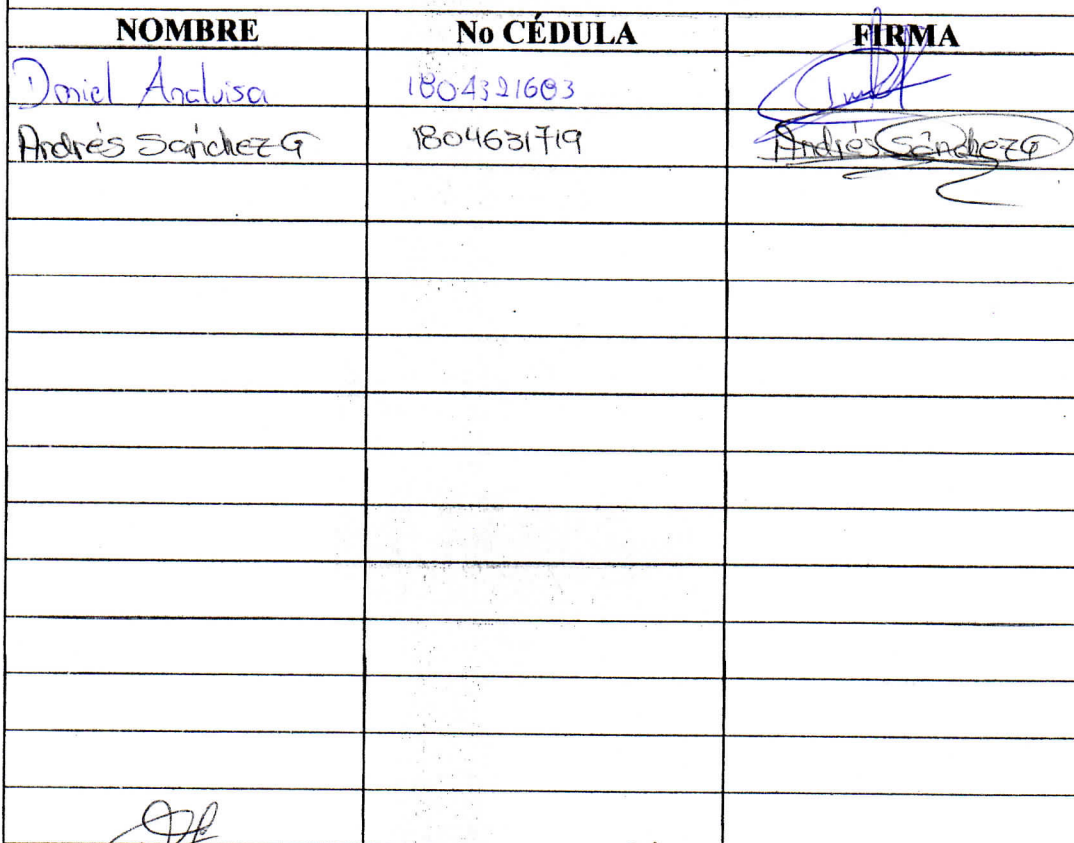 NOMBRE No CÉDULA FIRMA
Daniel Analuisa 1804321683
Andrés Sánchez G 1804631719 Andrés Sánchez G